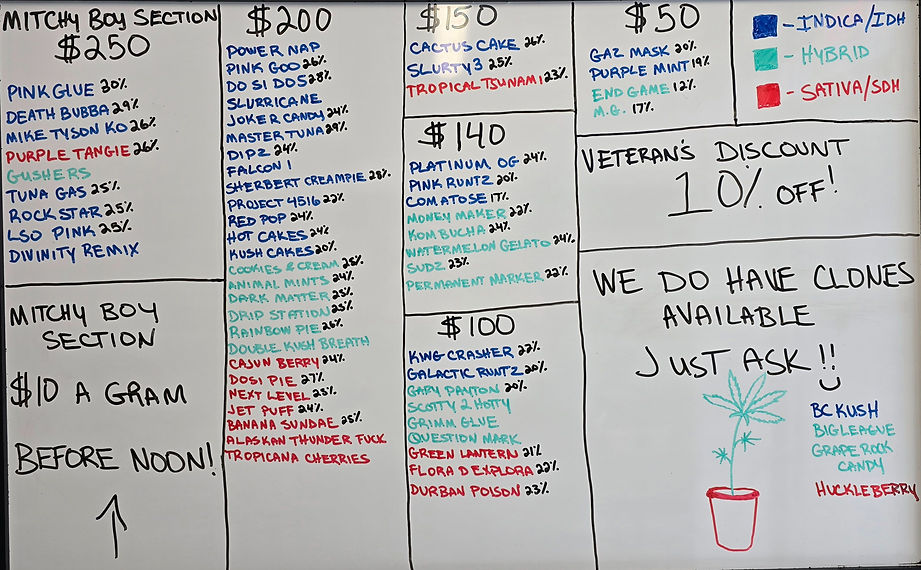 MITCHY BOY SECTION
$250
PINK GLUE 30%
DEATH BUBBA 29%
MIKE TYSON KO 26%
PURPLE TANGIE 26%
GUSHERS
TUNA GAS 25%
ROCK STAR 25%
LSO PINK 25%
DIVINITY REMIX
MITCHY BOY
SECTION
$10 A GRAM
BEFORE NOON!
$200
POWER NAP
PINK GOO 26%
DO SI DOS 28%
SLURRICANE
JOKER CANDY 24%
MASTER TUNA 29%
DIPZ 24%
FALCON 1
SHERBERT CREAMPIE 28%
PROJECT 4516 22%
RED POP 24%
HOT CAKES 24%
KUSH CAKES 20%
COOKIES & CREAM 25%
ANIMAL MINTS 24%
DARK MATTER 25%
DRIP STATION 25%
RAINBOW PIE 26%
DOUBLE KUSH BREATH
CAJUN BERRY 24%
DOSI PIE 27%
NEXT LEVEL 25%
JET PUFF 24%
BANANA SUNDAE 25%
ALASKAN THUNDER FUCK
TROPICANA CHERRIES
$150
CACTUS CAKE 26%
SLURTY3 25%
TROPICAL TSUNAMI 23%
$140
PLATINUM OG 24%
PINK RUNTZ 20%
COMATOSE 17%
MONEY MAKER 22%
KOMBUCHA 24%
WATERMELON GELATO 24%
SUDZ 23%
PERMANENT MARKER 22%
$100
KING CRASHER 22%
GALACTIC RUNTZ 20%
GARY PAYTON 20%
SCOTTY 2 HOTTY
GRIMM GLUE
QUESTION MARK
GREEN LANTERN 21%
FLORA D EXPLORA 22%
DURBAN POISON 23%
$50
GAZ MASK 20%
PURPLE MINT 19%
END GAME 12%
M.G. 17%
- INDICA/IDH
- HYBRID
- SATIVA/SDH
VETERAN'S DISCOUNT
10% OFF!
WE DO HAVE CLONES
AVAILABLE
JUST ASK!!
BC KUSH
BIGLEAGUE
GRAPE ROCK
CANDY
HUCKLEBERRY